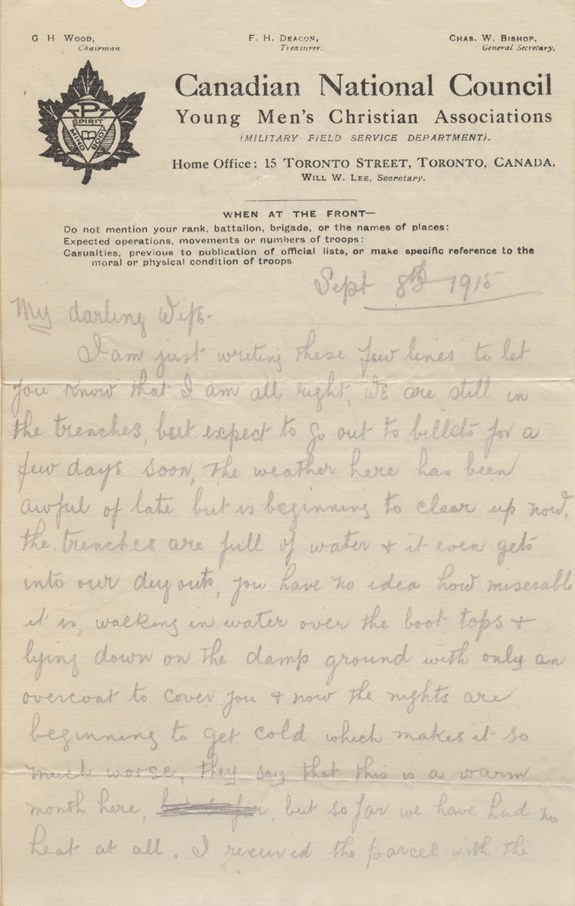 G H WOOD,
Chairman.
F. H. DEACON,
Treasurer.
CHAS. W. BISHOP,
General Secretary.
SPIRIT
MIND
BODY
Canadian National Council
Young Men's Christian Associations
(MILITARY FIELD SERVICE DEPARTMENT).
Home Office: 15 TORONTO STREET, TORONTO, CANADA.
WILL W. LEE, Secretary.
WHEN AT THE FRONT—
Do not mention your rank, battalion, brigade, or the names of places:
Expected operations, movements or numbers of troops:
Casualties, previous to publication of official lists, or make specific reference to the
moral or physical condition of troops
Sept 8th 1915
My darling Wife.
I am just writing these few lines to let
you know that I am all right, we are still in
the trenches, but expect to go out to billets for a
few days soon, the weather here has been
awful of late but is beginning to clear up now,
the trenches are full of water & it even gets
into our dugouts, you have no idea how miserable
it is, walking in water over the boot tops &
lying down on the damp ground with only an
overcoat to cover you & now the nights are
beginning to get cold which makes it so
much worse, they say that this is a warm
month here, but so far we have had no
heat at all. I received the parcel with the